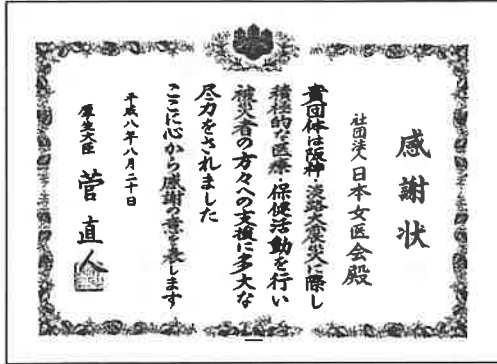 感謝状
社団法人日本女医会殿
貴団体は阪神・淡路大震災に際し
積極的な医療・保健活動を行い
被災者の方々への支援に多大な
尽力をされました
ここに心から感謝の意を表します
平成八年八月二十日
厚生大臣 菅直人